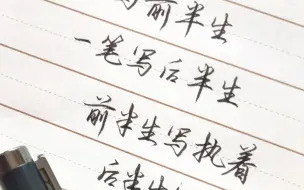 写前半生
一笔写后半生
前半生写执着
后半生